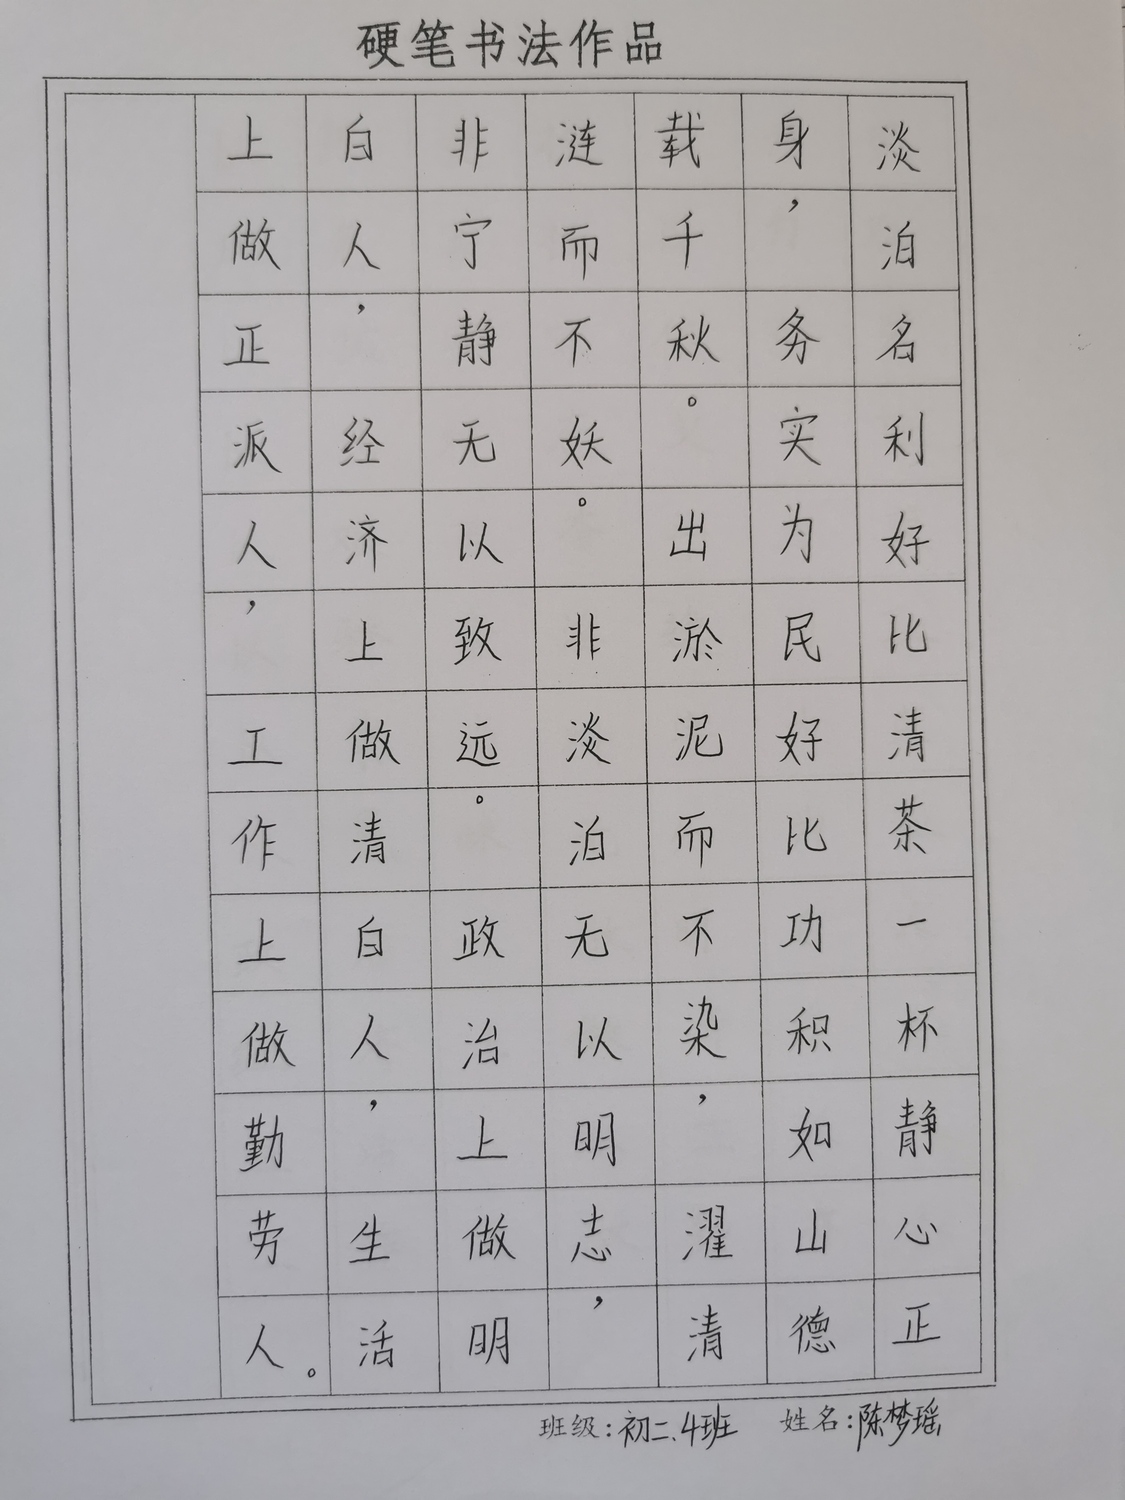 硬笔书法作品
淡泊名利好比清茶一杯静心正
身，务实为民好比功积如山德
载千秋。出淤泥而不染，濯清
涟而不妖。非淡泊无以明志，
非宁静无以致远。政治上做明
白人，经济上做清白人，生活
上做正派人，工作上做勤劳人。
班级：初二.4班 姓名：陈梦瑶